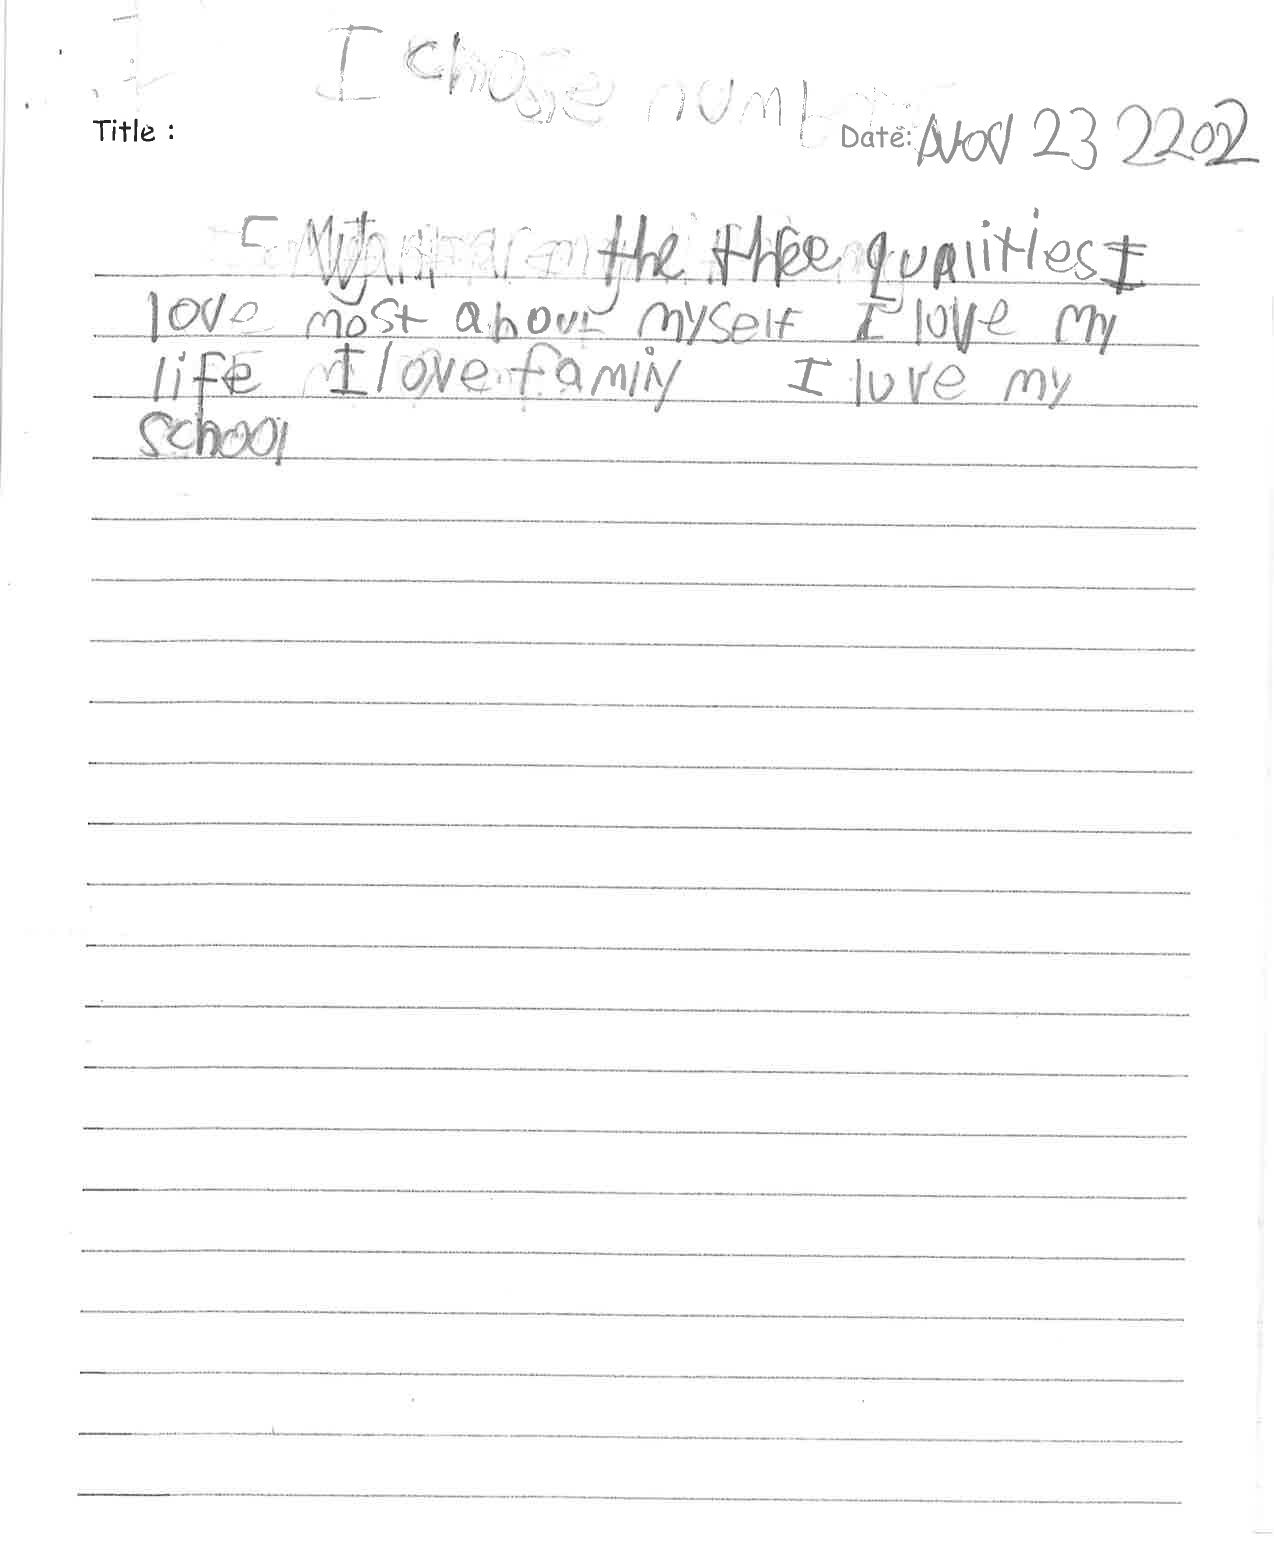 I chose numb
Title :
Date: Nov 23 2202
the three qualities I
love most about myself I love my
life I love family I love my
school